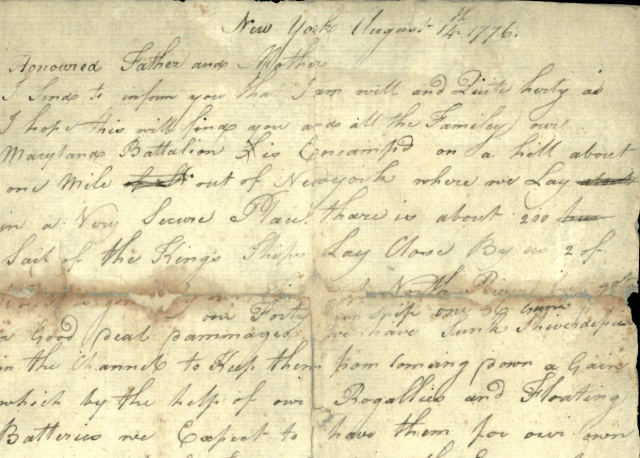 New York August 14th 1776.
Honoured Father and Mother
I Send to inform you that I am well and Quite herty as
I hope this will find you and all the Familey our
Maryland Battalion is Encampd on a hill about
one Mile out of Newyork where we Lay
in a Very Secure Place. there is about 200
Sail of the Kings Ships Lay Close By us 2 of
North River
one Forty one 30 we have Sunk
a Good deal dammaged
in the Channel to Keep them from Comeing down a Gain
which by the help of our Rogallies and Floating
Batteries we Expect to have them for our own